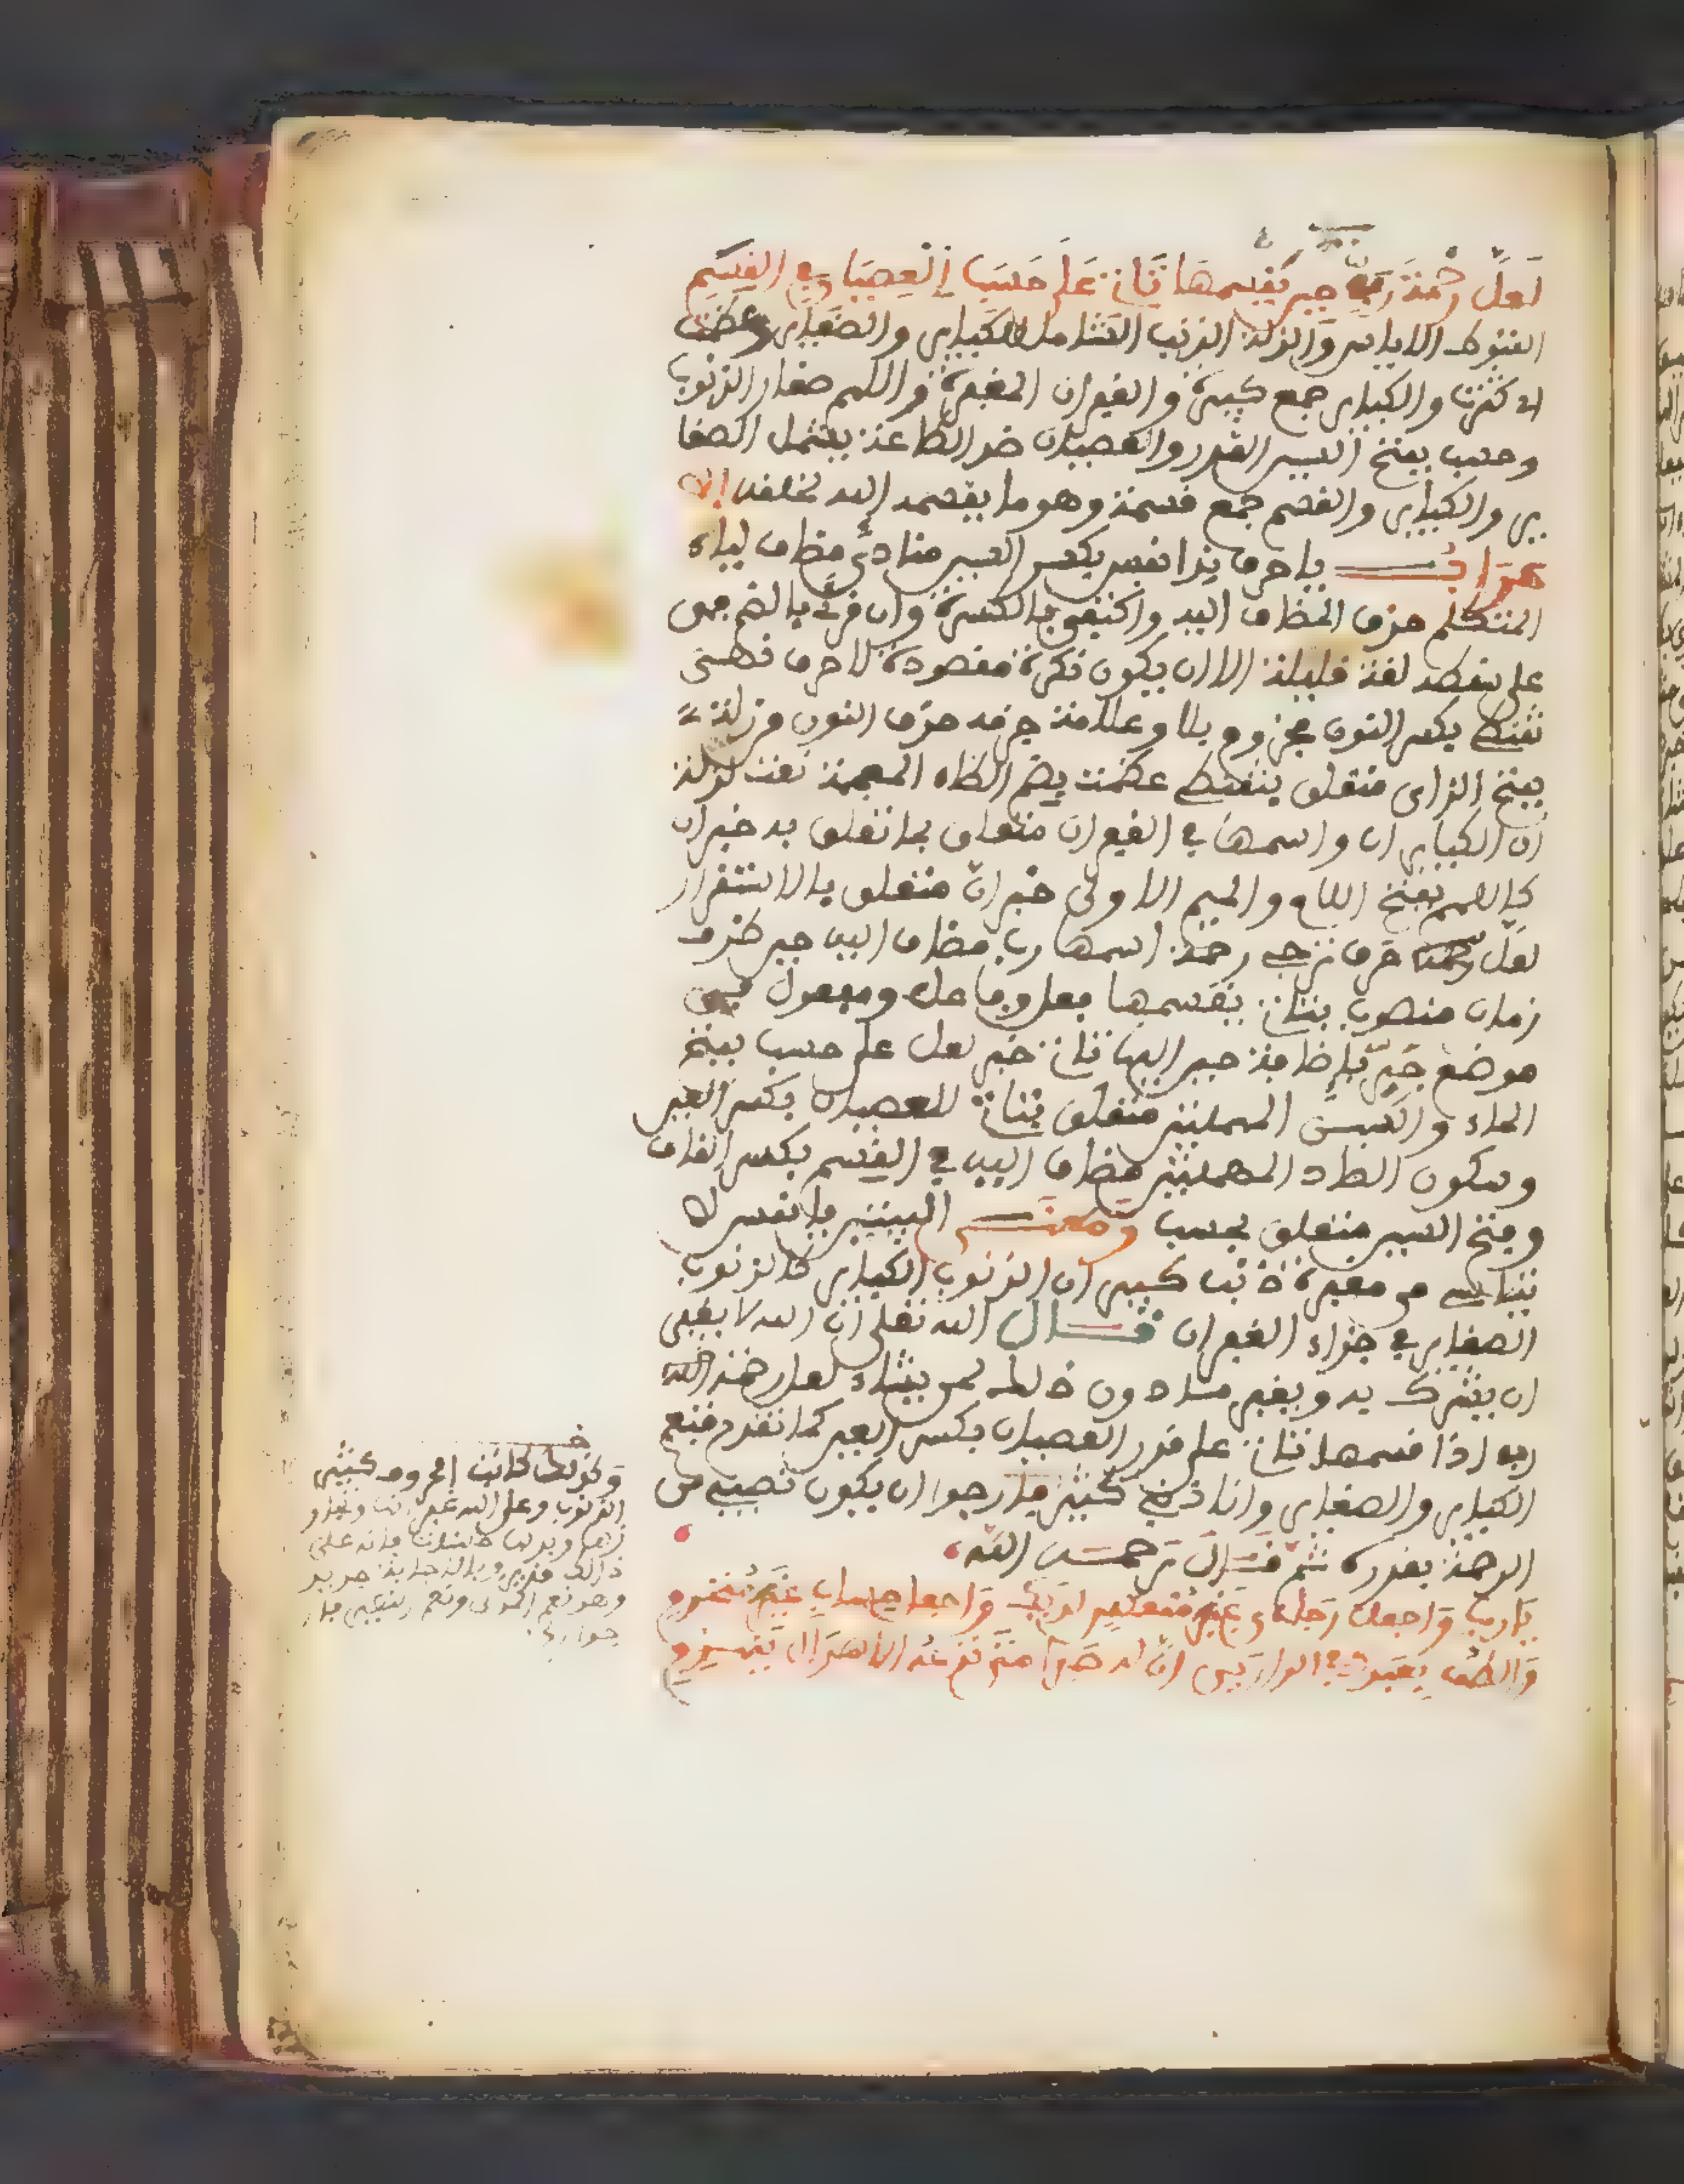 لَعَلَّ رَحْمَةَ رَبِّي حين يَقْسِمُهَا تَأتي عَلَى حَسَبِ الْعِصْيَانِ في القِسَمِ
القنوط الاياس والزلة الذنب الشامل للكباير والصغاير وعظمت
اذ كثرت والكباير جمع كبيرة والغفران المغفرة واللمم صغار الذنوب
وحسب بفتح السين القدر والعصيان ضد الطاعة يشمل الصغا
ير والكباير والقسم جمع قسمة وهو ما يقسمه الله لخلقه
اعرابـــه يا حرف ندا نفس بكسر السين منادى مضاف لياء
المتكلم حذف المضاف اليه واكتفى بالكسرة وان قرئ بالضم فهى
على لغة قليلة الا ان يكون نكرة مقصودة لا حرف نهى
تقنطى بكسر النون مجزوم بلا وعلامة جزمه حذف النون من زلة
بفتح الزاى متعلق بتقنطى عظمت بضم الظاء المعجمة نعت لزلة
ان الكباير ان واسمها في الغفران متعلق بما تعلق به خبر ان
كاللمم بفتح اللام والميم الاولى خبر ان متعلق بالاستقرار
لعل حرف ترجى رحمة اسمها رب مضاف اليه حين ظرف
زمان منصوب بتات يقسمها فعل وفاعل ومفعول في
موضع جرّ باضافة حين اليها تات خبر لعل على حسب بفتح
الحاء والسين المهملتين متعلق بتات العصيان بكسر العين
وسكون الصاد المهملتين مضاف اليه في القسم بكسر القاف
وفتح السين متعلق بحسب ومعنــى البيتين يا نفس لا
تياسى من مغفرة ذنب كبير ان الذنوب الكباير كالذنوب
الصغاير في جزاء الغفران قــال الله تعلى ان الله لا يغفر
ان يشرك به ويغفر ما دون ذلك لمن يشاء لعل رحمة الله
ربى اذا قسمها تات على قدر العصيان بكسر العين كما تقدم فتعم
الكباير والصغاير وانا ذنبى كثير فارجوا ان يكون نصيبى من
الرحمة بقدره ثم قــال رحمــه الله
يَارَبِّ وَاجْعَلْ رَجَاءي غَيْرَ مُنْعَكِسٍ لَدَيْكَ وَاجْعَل حِسَابي غَيْرَ مُنْخَرِمِ
وَالْطُفْ بِعَبْدِكَ في الدارَيْنِ اِنَّ لَه صَبْرًا مَتَى تَدْعُه الاَهْوَالُ يَنْهَزِمِ
الذنوب وعلى الله